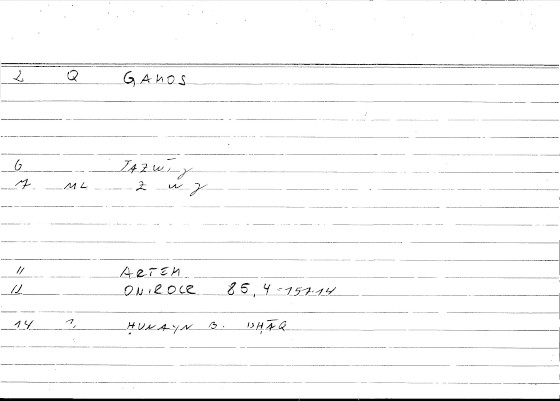 2 Q GAMOS
6 TAZWĪǧ
7 ML Z W J
11 ARTEM.
12 ONIROCR 85, 4-15714
14 ḤUNAYN B. ISḤĀQ